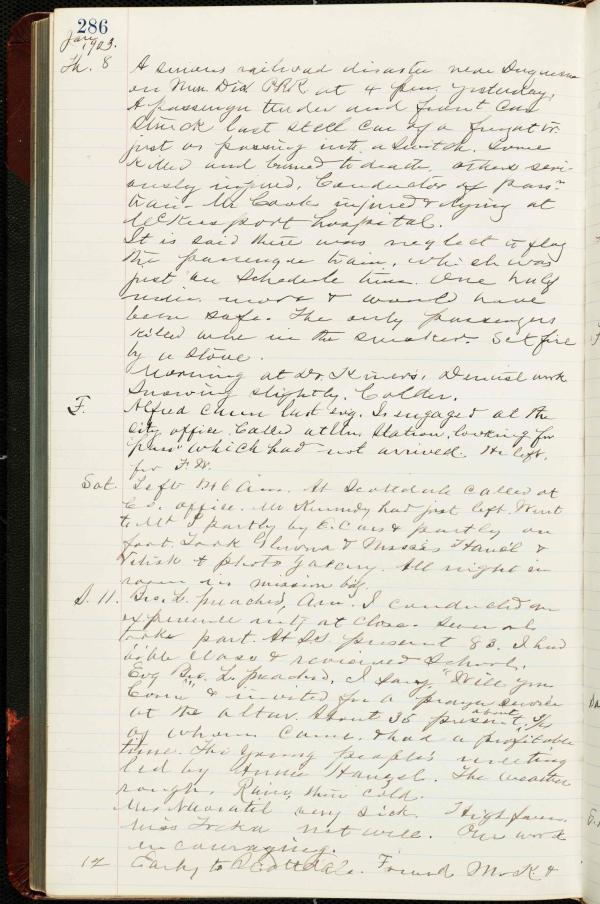 286
Jany
1903.
Th. 8 A serious railroad disaster near Duquesne
on Mon. Div. PRR at 4 p.m. yesterday.
A passenger tender and front car
struck last steel car of a freight tr.
just as passing into a switch. Some
killed and burned to death, others seri-
ously injured. Conductor of pass.
train - Mr Cook injured & dying at
McKeesport hospital.
It is said there was neglect to flag
the passenger train, which was
just on schedule time. One half
more & would have
been safe. The only passengers
killed were in the smoker. Set fire
by a stove.
Morning at Dr. Dentist work
Snowing slightly. Colder.
F. Alfred came last evg. Is engaged at the
city office. Called at Un. Station, looking for
"pass" which had not arrived. He left
for F. W.
Sat. Left 746 a.m. At Scottdale called at
C. S. office. Mr Kennedy had just left. Went
to Mt P partly by E. Cars & partly on
foot. Took & Misses &
& photo gallery. All night in
room in mission bldg.
S. 11. Bro. L. preached, a.m. I conducted an
experience mtg at close. Several
took part. At S.S. present 83. I had
bible class & reviewed school.
Evg Bro. L. preached, I sang "Will you
Come" & invited for a prayer service
at the altar. About 35 present, about
of whom came & had a profitable
time. The young people's meeting
led by Annie The weather
rough. Rain, then cold.
Mr very sick. High fever.
Miss not well. Our work
encouraging.
12 Early to Scottdale. Found Mr K. &